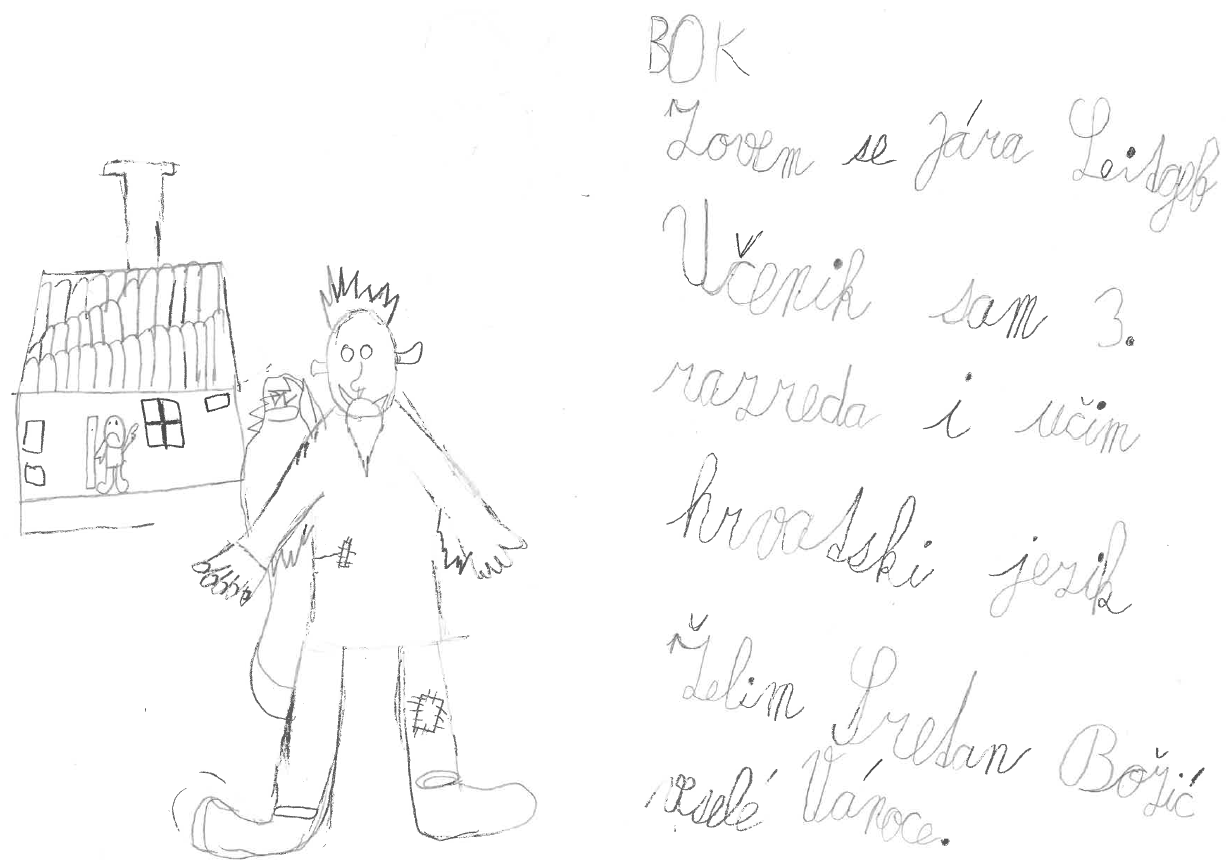 BOK
Zovem se Jára Leitgeb
Učenik sam 3.
razreda i učim
hrvatski jezik
Želim Sretan Božić
veselé Vánoce.